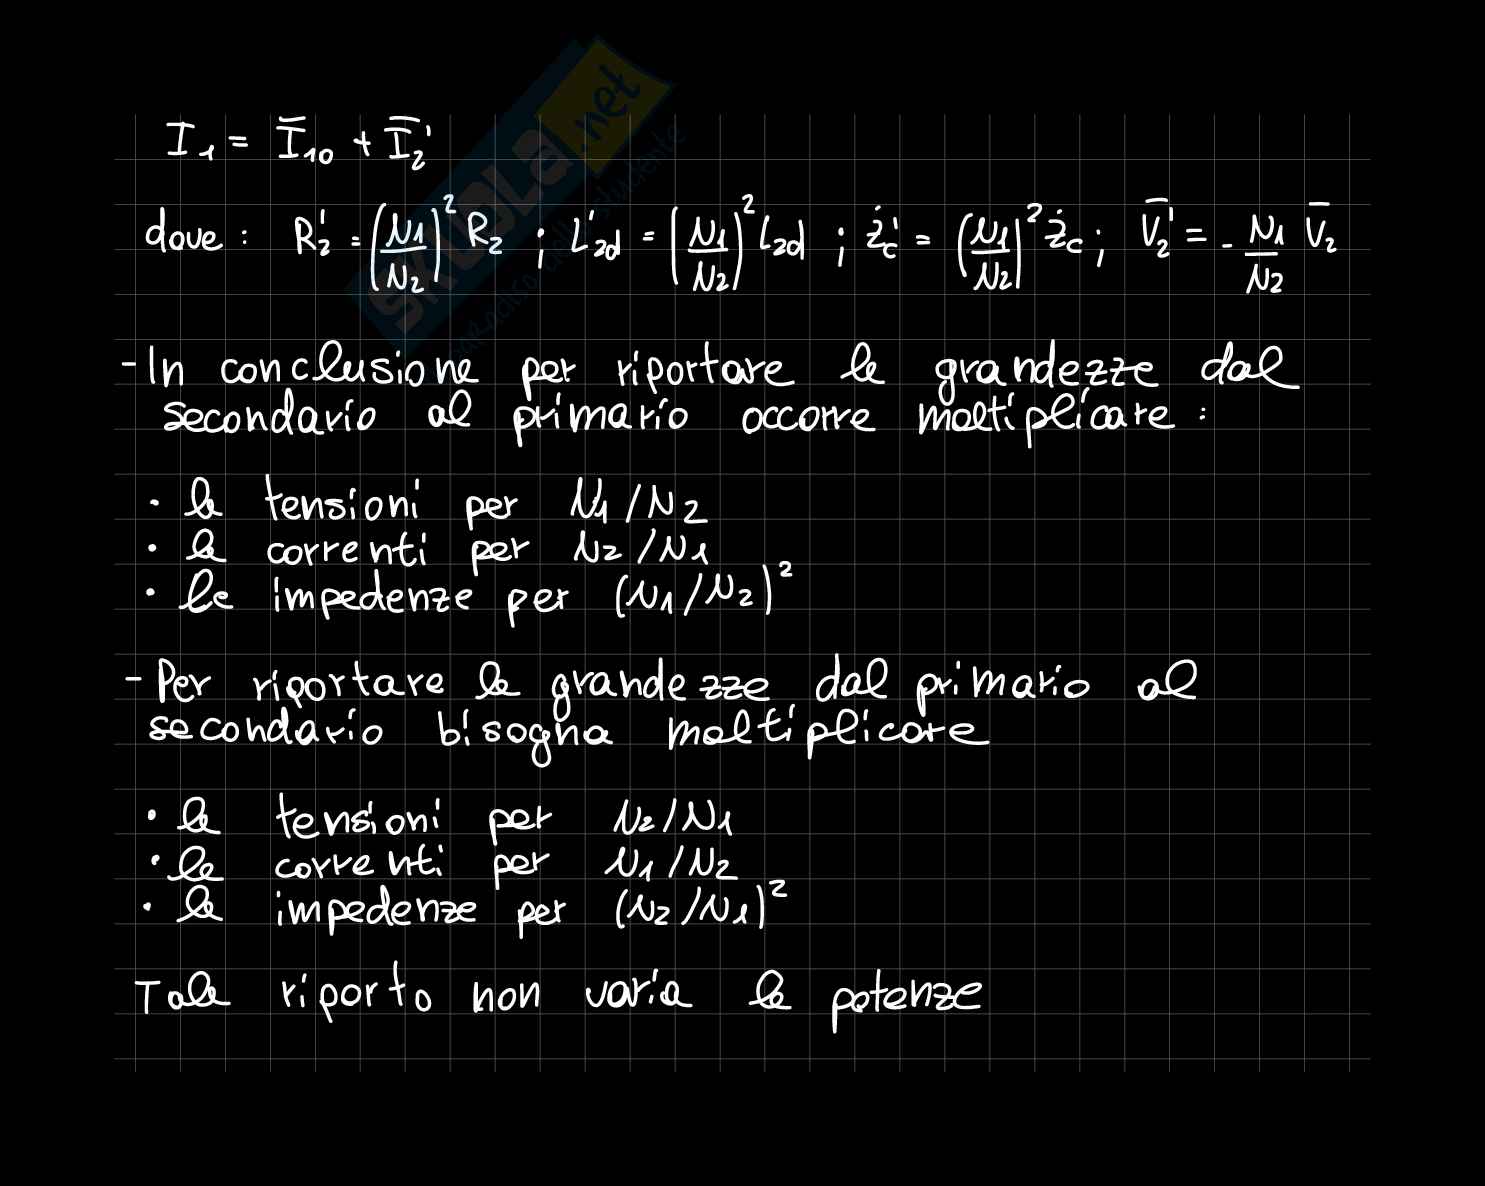 I₁ = Ī₁₀ + Ī₂'
dove : R₂' = (N1/N2)² R₂ ; L'₂d = (N1/N2)² L₂d ; Żc' = (N1/N2)² Żc ; V̄₂' = - N1/N2 V̄₂
- In conclusione per riportare le grandezze dal
secondario al primario occorre moltiplicare :
• le tensioni per N1/N2
• le correnti per N2/N1
• le impedenze per (N1/N2)²
- Per riportare le grandezze dal primario al
secondario bisogna moltiplicare
• le tensioni per N2/N1
• le correnti per N1/N2
• le impedenze per (N2/N1)²
Tale riporto non varia le potenze
SKUOLA.net
paradiso dello studente